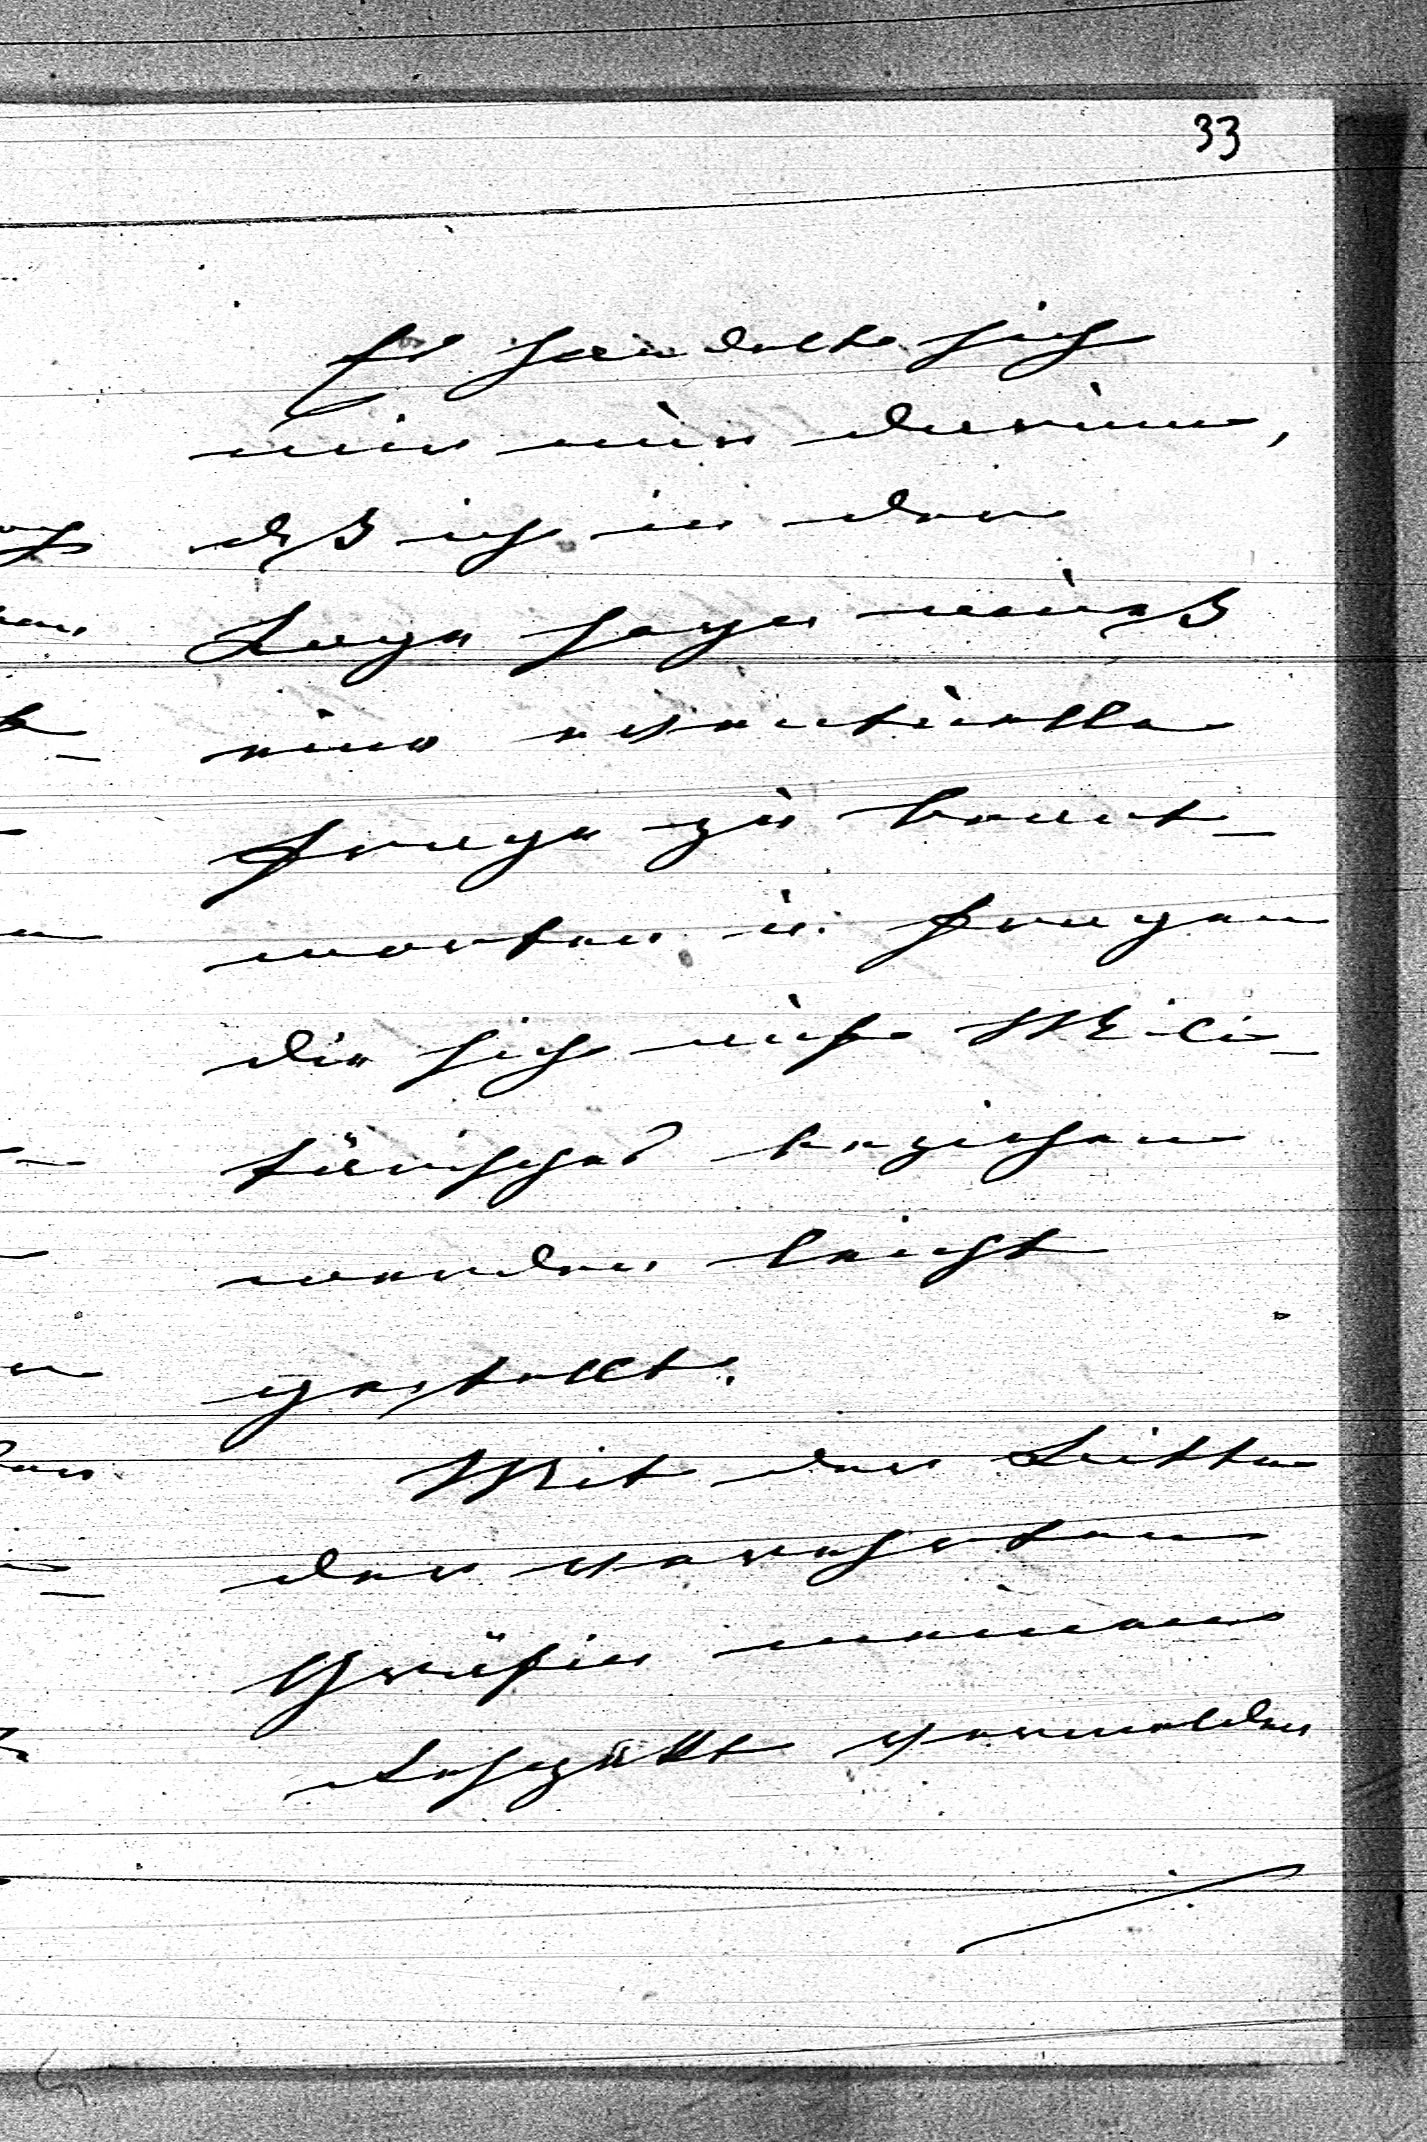 33
Es handelte sich
mir nur darum,
daß ich in der
Lage seyn muß
eine eventuelle
Frage zu beant-
worten u. Fragen
die sich aufs Mili-
tärisches beziehen
werden leicht
gestellt.
Mit der Bitte
der verehrten
Gräfin meinen
Respekt vermelden